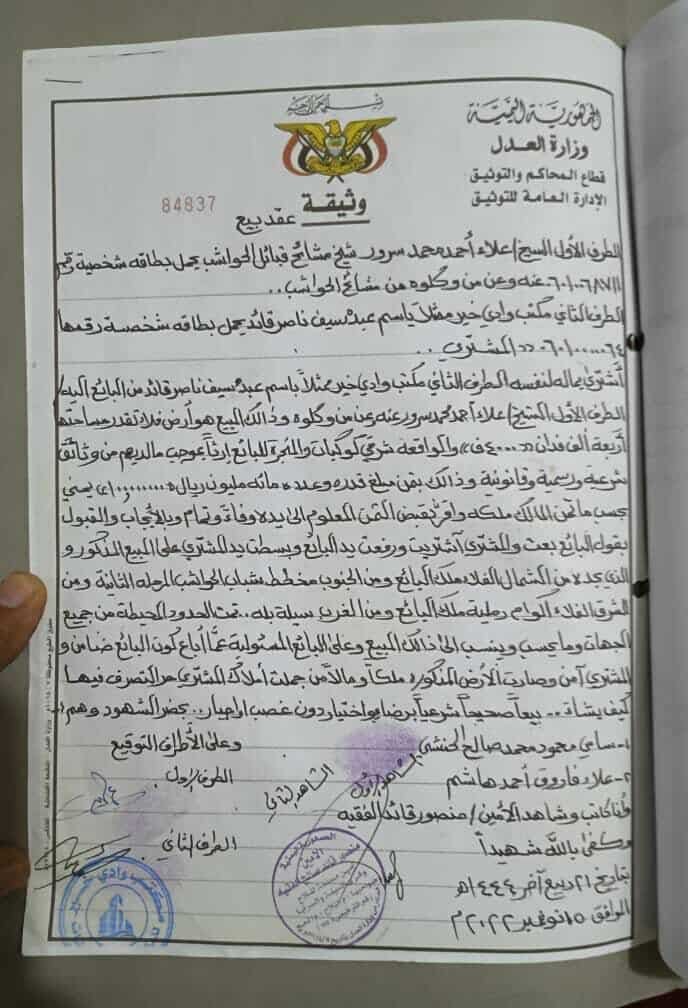 بسم الله الرحمن الرحيم
الجمهورية اليمنية
وزارة العدل
قطاع المحاكم والتوثيق
الإدارة العامة للتوثيق
84837
وثيقة عقد بيع
الطرف الأول الشيخ/ علاء أحمد محمد سرور شيخ مشائخ قبائل الحواشب يحمل بطاقه شخصية رقم
عنه وعن من وكلوه من مشائخ الحواشب..
الطرف الثاني مكتب وادي خير ممثلاً باسم عبده سيف ناصر قائد يحمل بطاقه شخصية رقمها
المشتري..
أشترى بماله لنفسه الطرف الثاني مكتب وادي خير ممثلاً باسم عبده سيف ناصر قائد من البائع اليه/
الطرف الأول الشيخ/ علاء أحمد محمد سرور عنه وعن من وكلوه وذالك المبيع هو أرض فلاء تقدر مساحتها
أربعة ألف فدان «٤٠٠٠ف» والواقعه شرقي للبائع إرثاً بموجب مالديهم من وثائق
شرعية ورسمية وقانونية وذالك بثمن مبلغ قدره وعدده مائه مليون ريال يمني
بحسب ماثمن المالك ملكه واقر بقبض الثمن المعلوم الى يده وفاءً وتمام وبالأيجاب والقبول
بقول البائع بعت والمشتري أشتريت ورفعت يد البائع وبسطت يد المشتري على المبيع المذكور و
الذي يحده من الشمال الفلاء ملك البائع ومن الجنوب مخطط شباب الحواشب المرحله الثانية ومن
الشرق الفلاء أكوام رملية ملك البائع ومن الغرب سيلة بله.. تمت الحدود المحيطة من جميع
الجهات وما يحسب وينسب الى ذالك المبيع وعلى البائع المسئولية عمّا أباع كون البائع ضامن و
المشتري آمن وصارت الأرض المذكوره ملكاً ومالاً من جملت أملاك المشتري حر التصرف فيها
كيف يشاء.. بيعاً صحيحاً شرعياً برضاء واختيار دون غصب او اجبار.. بحضر الشهود وهم:
١- سامي محمود محمد صالح الحنشي
وعلى الأطراف التوقيع
٢- علاء فاروق أحمد هاشم
الشاهد الأول
الشاهد الثاني
الطرف الاول
وأنا كاتب وشاهد الأمين/ منصور قائد الفقيه
وكفى بالله شهيداً
الطرف الثاني
بتاريخ ٢١ ربيع آخر ١٤٤٤هـ
الموافق ١٥ نوفمبر ٢٠٢٢م
الجمهورية اليمنية
الأمين
مكتب وادي خير